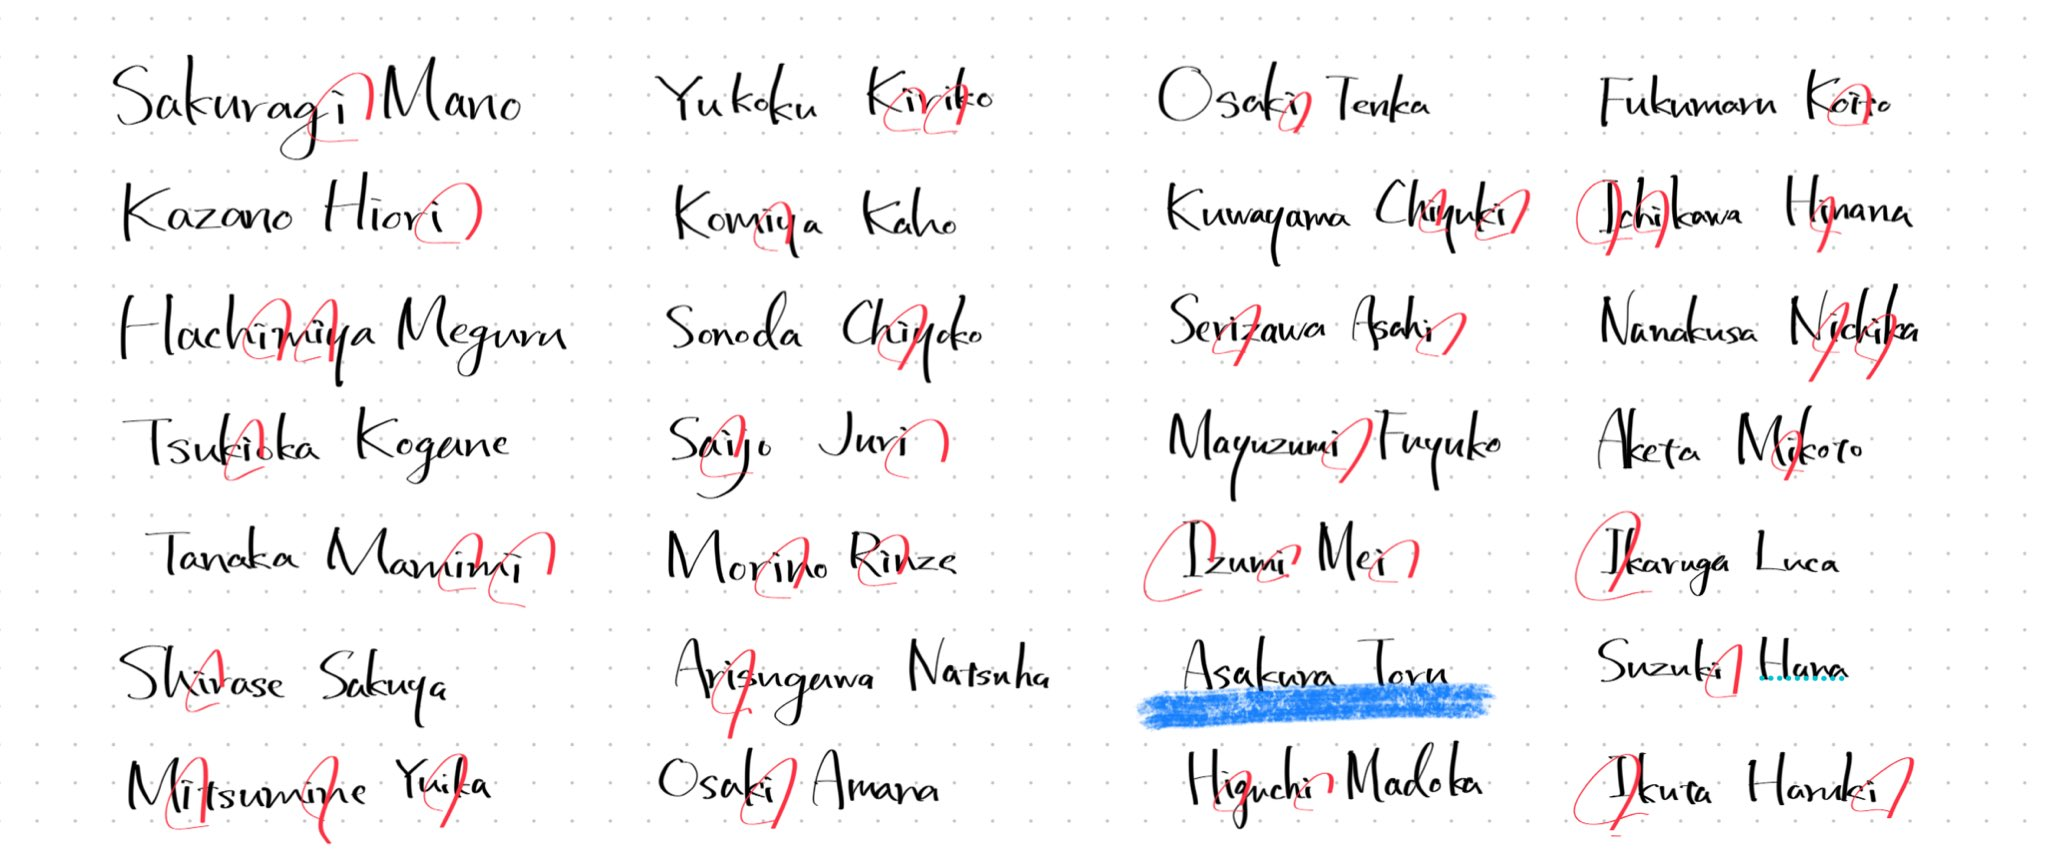 Sakuragi Mano
Kazano Hiori
Hachimiya Meguru
Tsukioka Kogane
Tanaka Mamimi
Shirase Sakuya
Mitsumine Yuika
Yukoku Kiriko
Komiya Kaho
Sonoda Chiyoko
Saijo Juri
Morino Rinze
Arisugawa Natsuha
Osaki Amana
Osaki Tenka
Kuwayama Chiyuki
Serizawa Asahi
Mayuzumi Fuyuko
Izumi Mei
Asakura Toru
Higuchi Madoka
Fukumaru Koito
Ichikawa Hinana
Nanakusa Nichika
Aketa Mikoto
Ikaruga Luca
Suzuki Hana
Ikuta Haruki